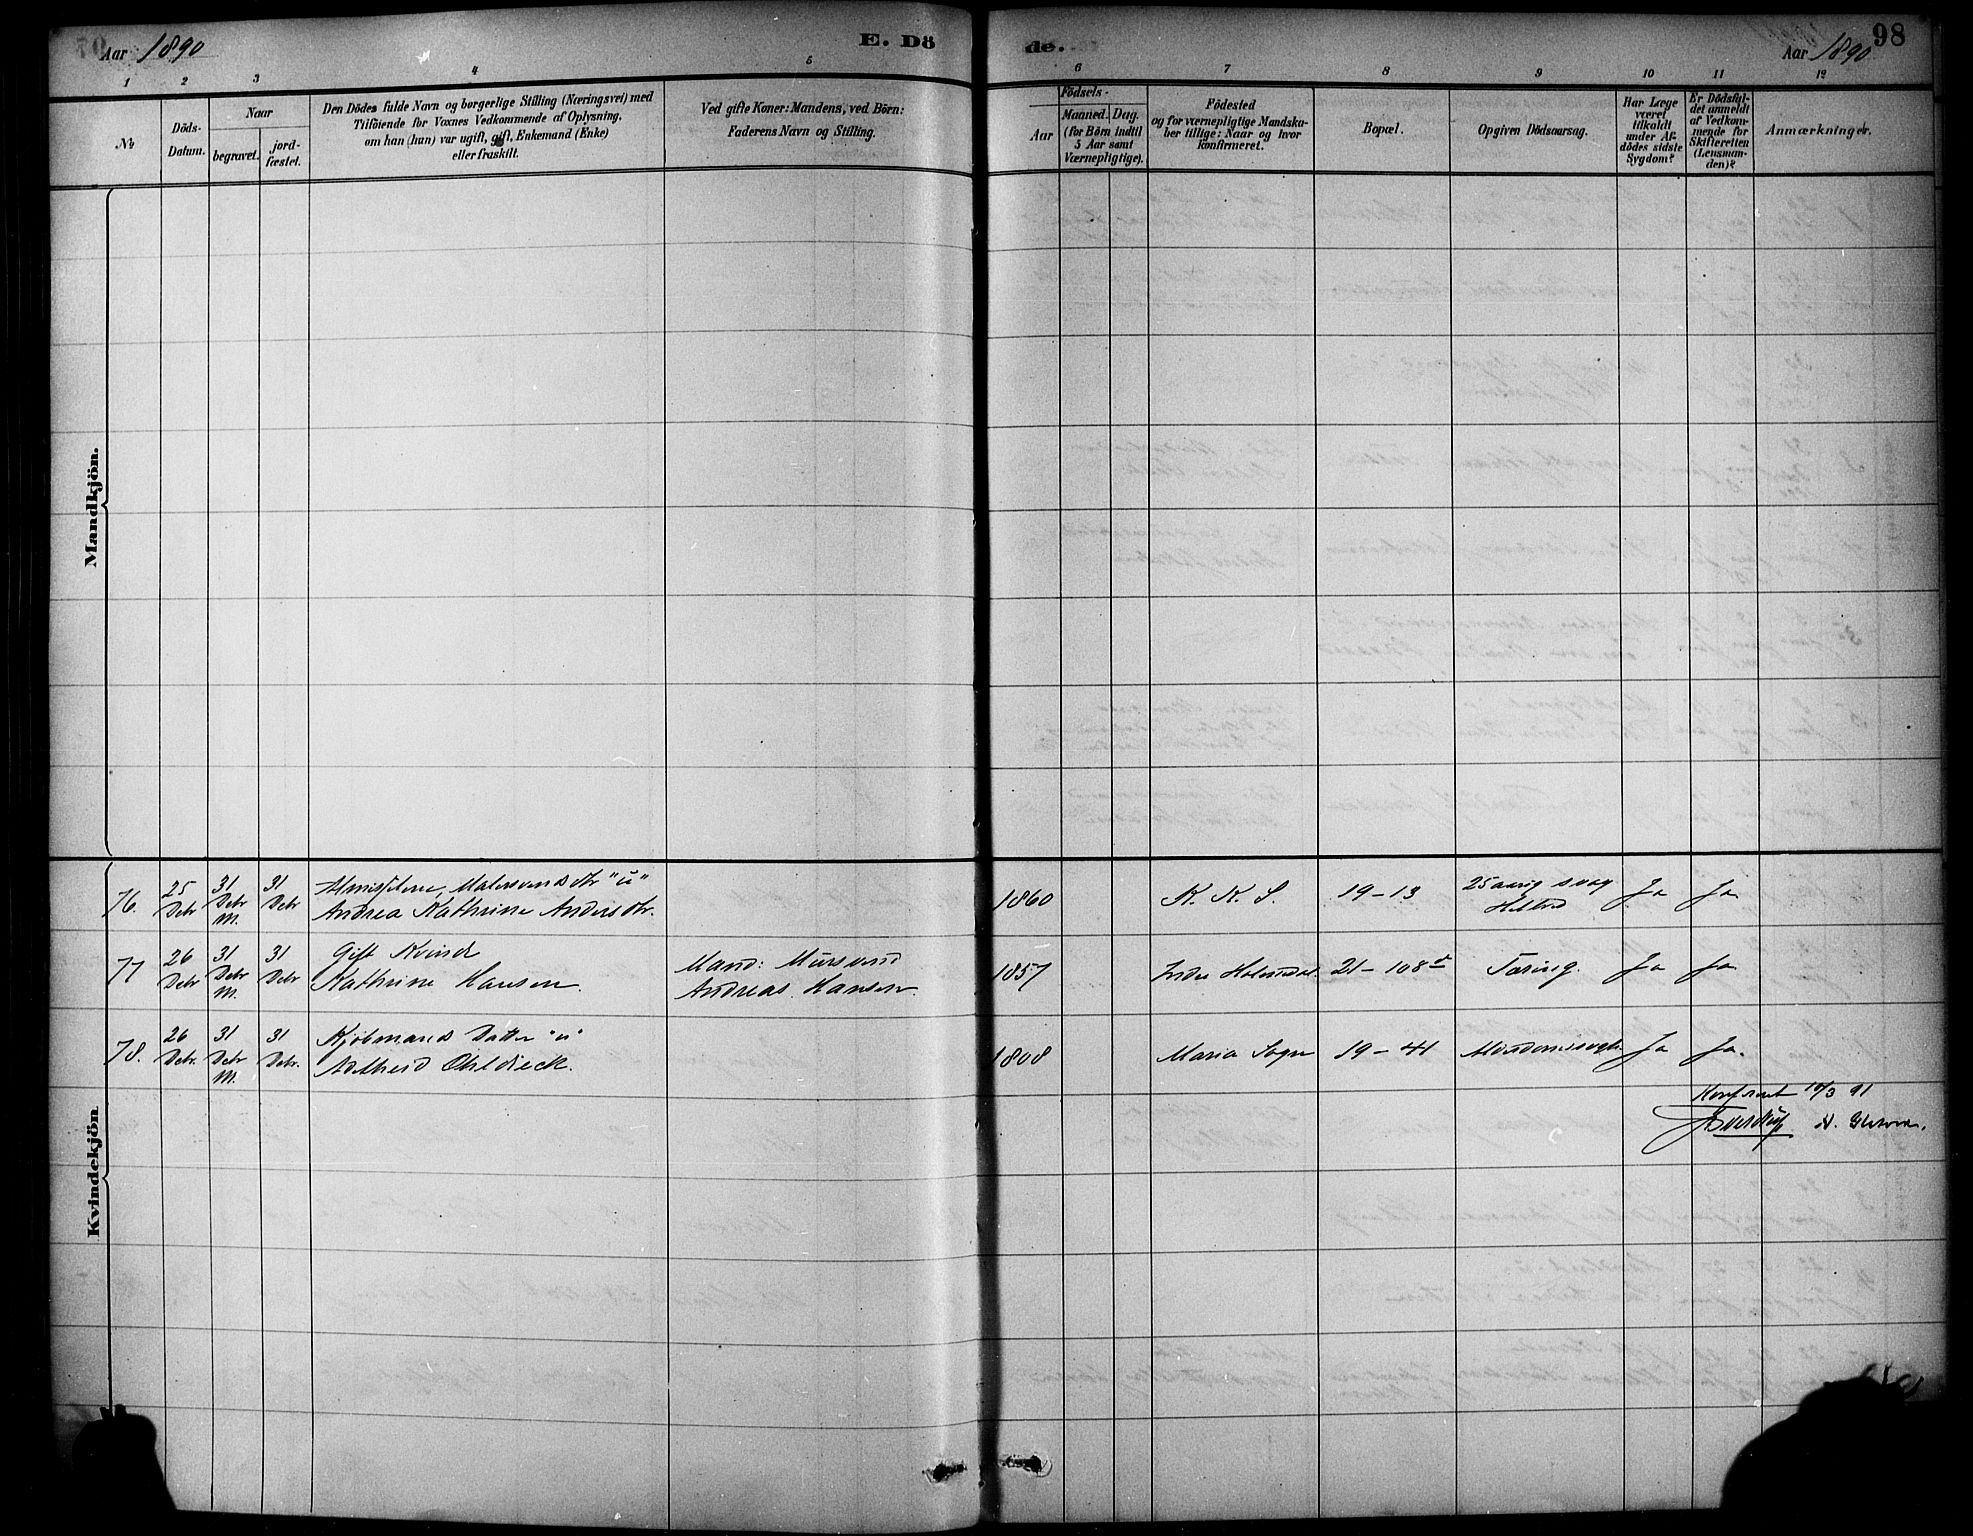 Aar 1890
E. Dö
de.
98
Aar 1890
1 2 3 4 5
6 7 8 9 10 11 12
No
Döds-
Datum.
Naar
begravet.
jord-
fæstet.
Den Dödes fulde Navn og borgerlige Stilling (Næringsvei) med
Tilföiende for Voxnes Vedkommende af Oplysning,
om han (hun) var ugift, gift, Enkemand (Enke)
eller fraskilt.
Ved gifte Koner: Mandens, ved Börn:
Faderens Navn og Stilling.
Födsels-
Aar
Maaned. Dag.
(for Börn indtil
5 Aar samt
Værnepligtige).
Födested
og for værnepligtige Mandska-
ber tillige: Naar og hvor
konfirmeret.
Bopæl.
Opgiven Dödsaarsag.
Har Læge
været
tilkaldt
under Af-
dödes sidste
Sygdom?
Er Dödsfal-
det anmeldt
af Vedkom-
mende for
Skifteretten
(Lensman-
den)?
Anmærkninger.
Mandkjön.
Kvindekjön.
76.
25
Debr
31
Debr
M.
31
Debr
Malersvends dtr "u"
Andrea Kathrine Andersdtr.
1860
K. K. S.
19-13
25 aarig svag
Ja
Ja
77
26
Debr
31
Debr
M.
31
Debr
Gift Kvinde
Kathrine Hansen.
Mand: Mursvend
Andreas Hansen.
1857
Indre Holmedal
21-108 d
Tæring.
Ja
Ja
78.
26
Debr.
31
Debr
M.
31
Debr.
Kjöbmands Datter "u"
Adelheid Ohldieck.
1808
Maria Sogn
19-41
Ja
Ja.
Konfereret 10/3 91